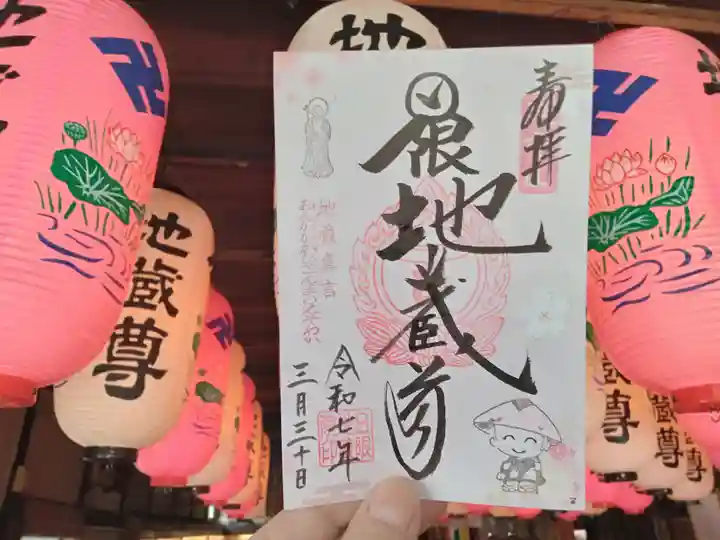 奉拝
日限地蔵尊
地蔵真言
おんかかかびさんまえいそわか
令和七年
三月三十日
地
地蔵尊
蔵尊